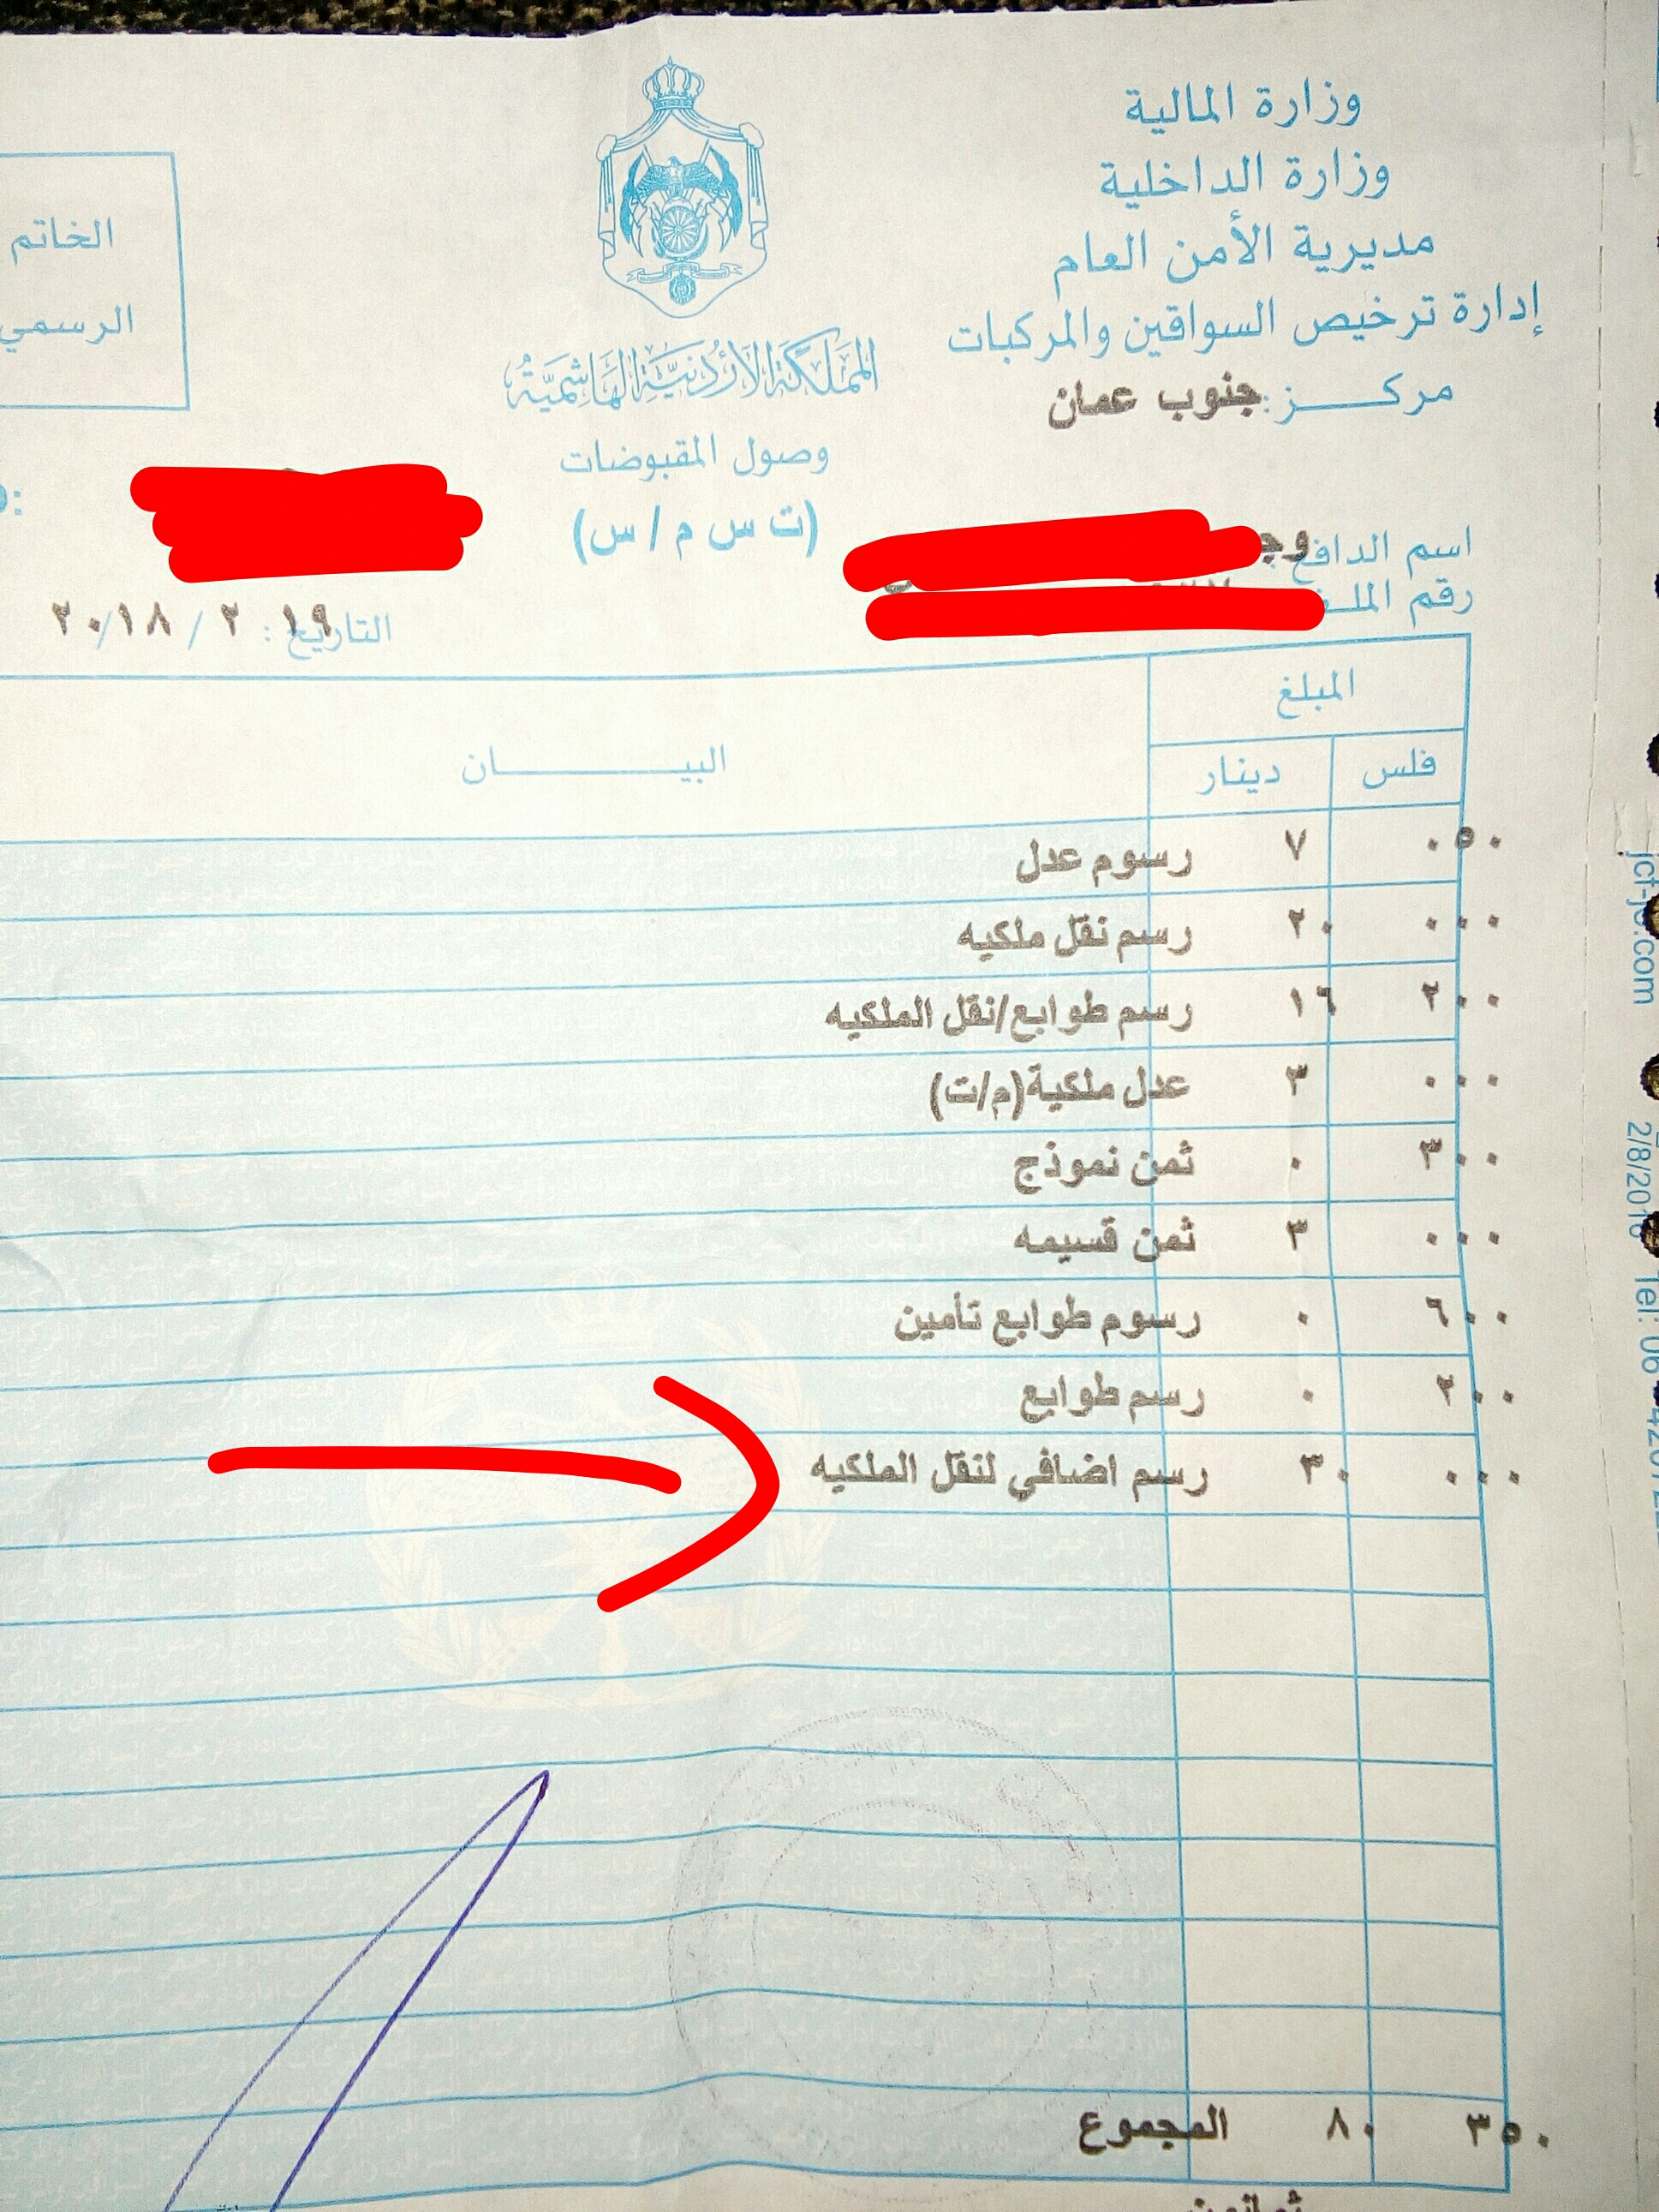 وزارة المالية
وزارة الداخلية
مديرية الأمن العام
إدارة ترخيص السواقين والمركبات
مركـــــز: جنوب عمان
المملكة الأردنية الهاشمية
وصول المقبوضات
(ت س م / س)
الخاتم
الرسمي
اسم الدافع
رقم الملف
التاريخ: ١٩ / ٢ / ٢٠١٨
المبلغ
فلس دينار البيـــــــان
٠٥٠ ٧ رسوم عدل
٠٠٠ ٢٠ رسم نقل ملكيه
٢٠٠ ١٦ رسم طوابع/نقل الملكيه
٠٠٠ ٣ عدل ملكية(م/ت)
٣٠٠ ٠ ثمن نموذج
٠٠٠ ٣ ثمن قسيمه
٦٠٠ ٠ رسوم طوابع تأمين
٢٠٠ ٠ رسم طوابع
٠٠٠ ٣٠ رسم اضافي لنقل الملكيه
٣٥٠ ٨٠ المجموع
ثمانون
2/8/2016